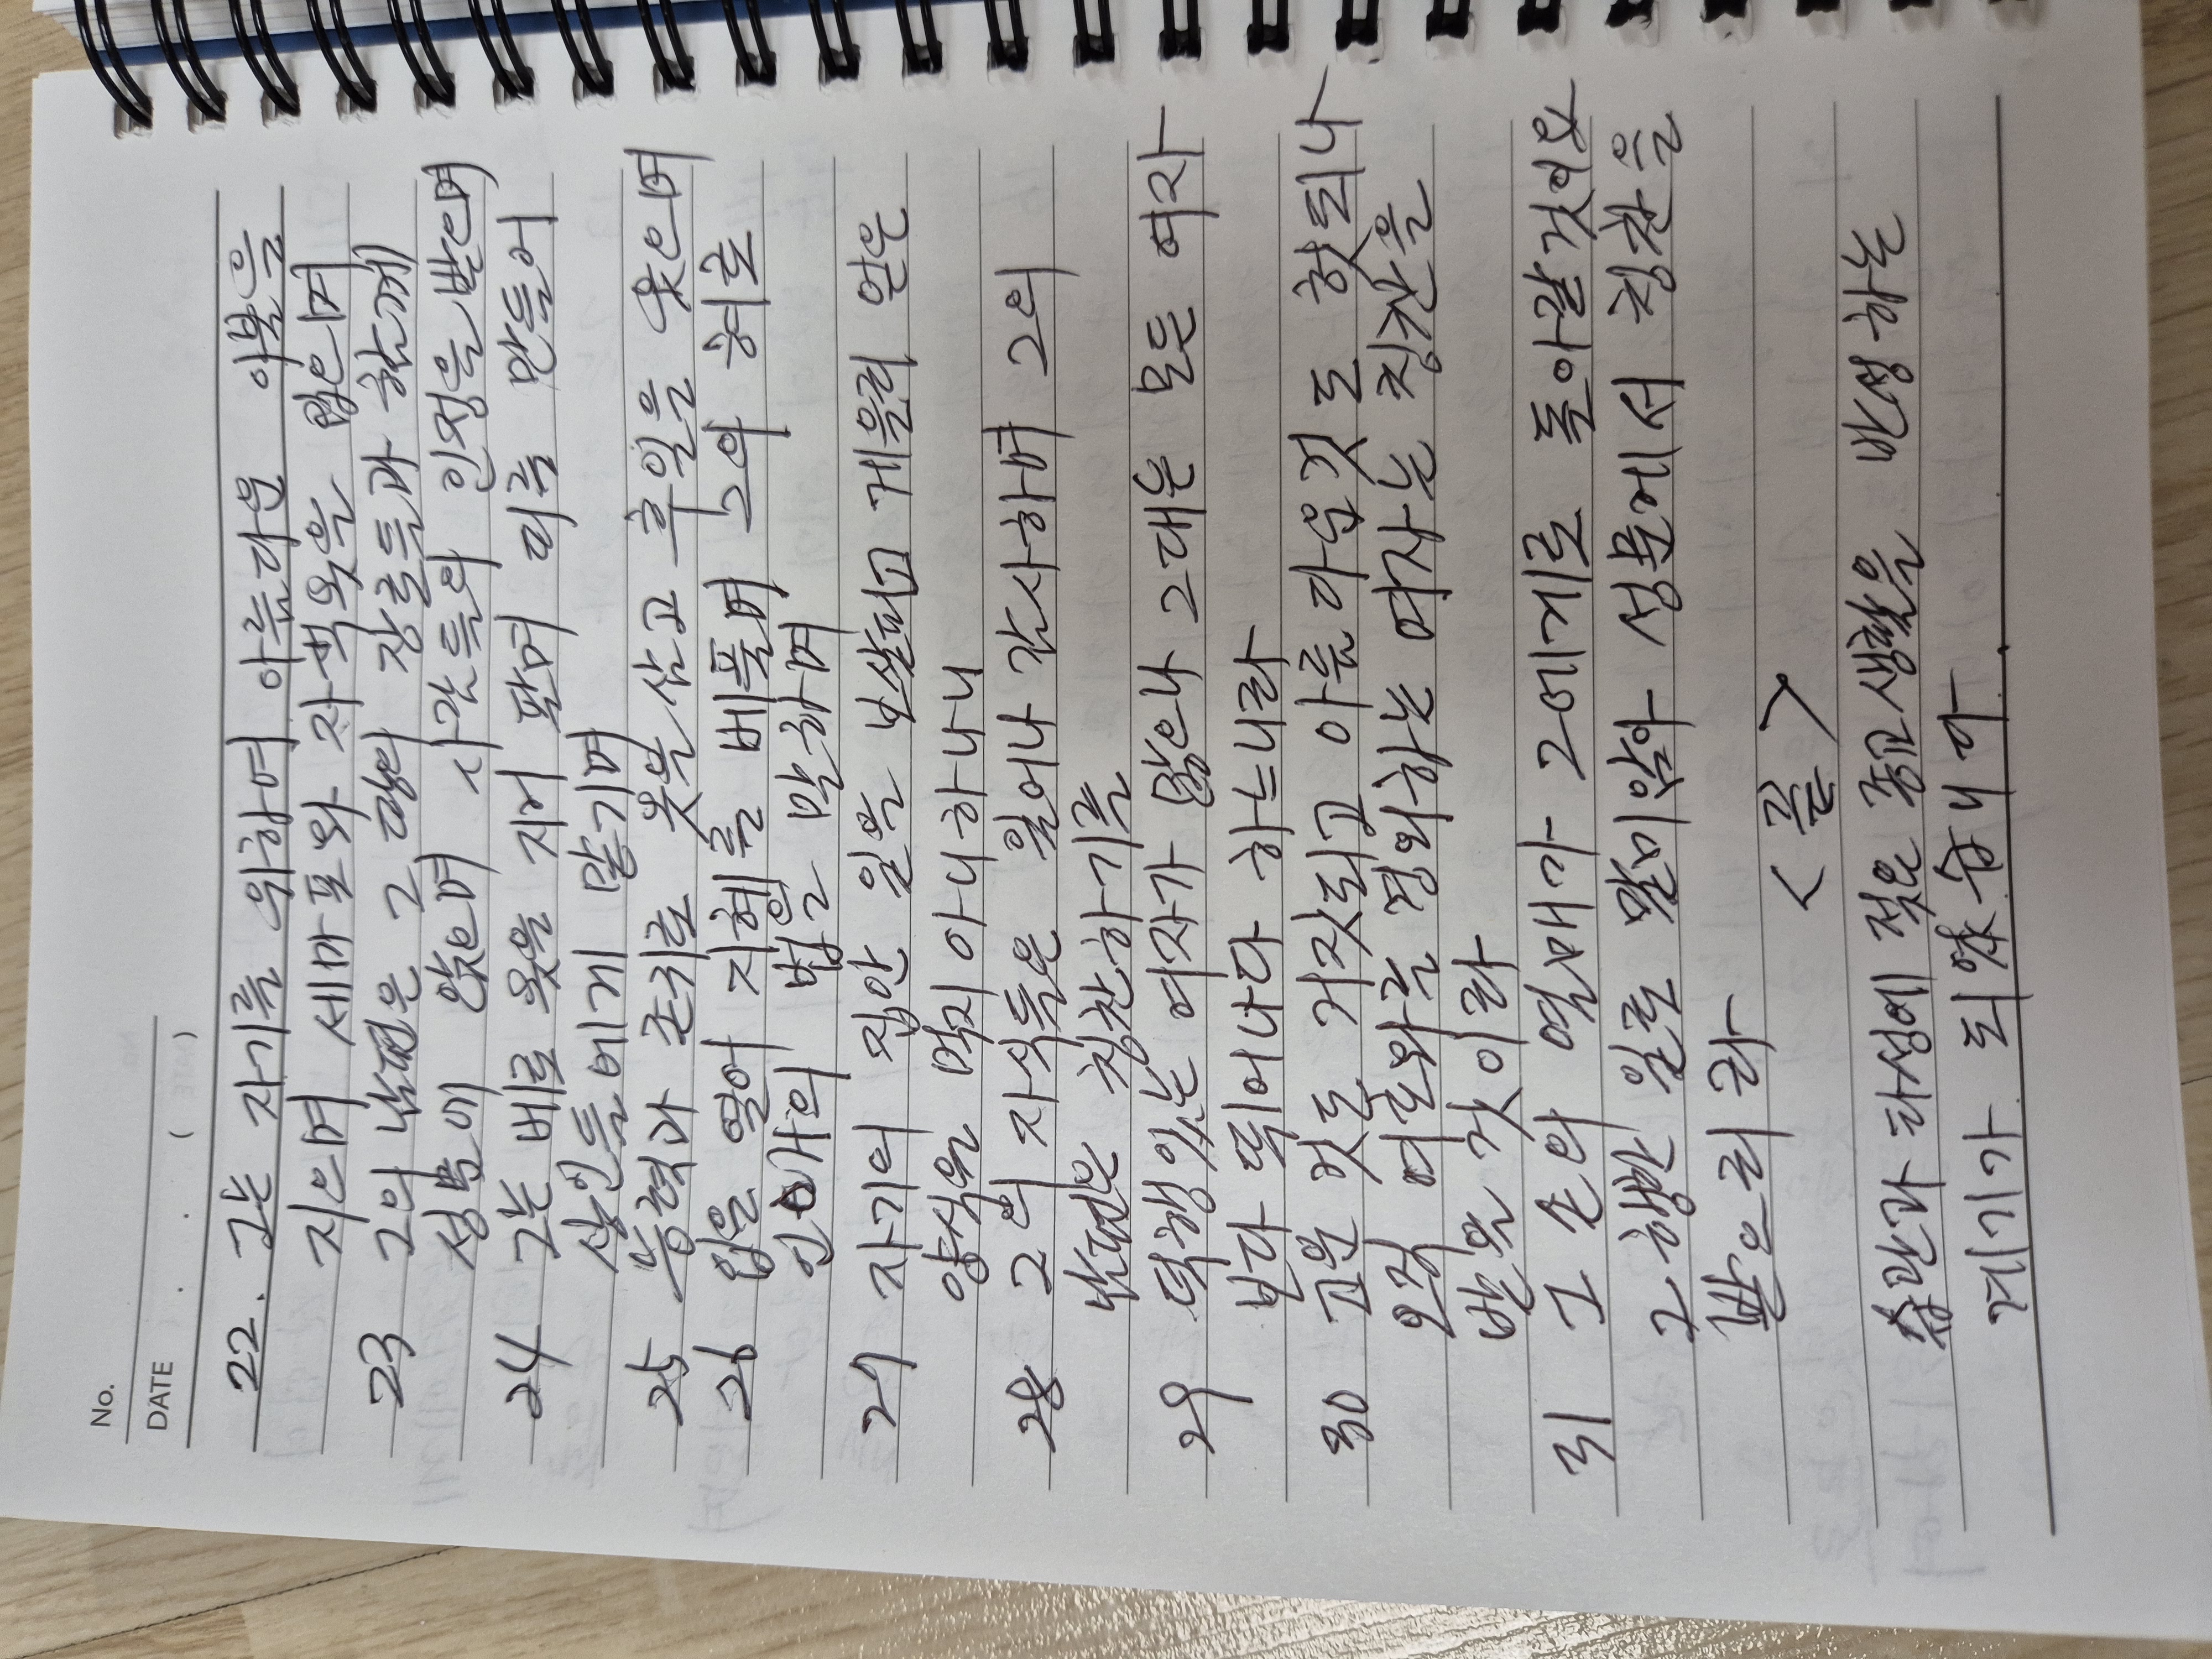 No.
DATE . . ( )
22. 그는 자기를 위하여 아름다운 이불을
지으며 세마포와 자색 옷을 입으며
23 그의 남편은 그 땅의 장로들과 함께
성문에 앉으며 사람들의 인정을 받으며
24 그는 베로 옷을 지어 팔며 띠를 만들어
상인들에게 맡기며
25 능력과 존귀로 옷을 삼고 후일을 웃으며
26 입을 열어 지혜를 베풀며 그의 혀로
인애의 법을 말하며
27 자기의 집안 일을 보살피고 게을리 얻은
양식을 먹지 아니하나니
28 그의 자식들은 일어나 감사하며 그의
남편은 칭찬하기를
29 덕행 있는 여자가 많으나 그대는 모든 여자
보다 뛰어나다 하느니라
30 고운 것도 거짓되고 아름다운것도 헛되나
오직 여호와를 경외하는 여자는 칭찬을
받을 것이라
31 그 손의 열매가 그에게로 돌아갈것이요
그 행한 일로 말미암아 성문에서 칭찬을
받으리라
<끝>
습관과 타성에 젖은 종교생활을 반성하는
계기가 되었습니다.